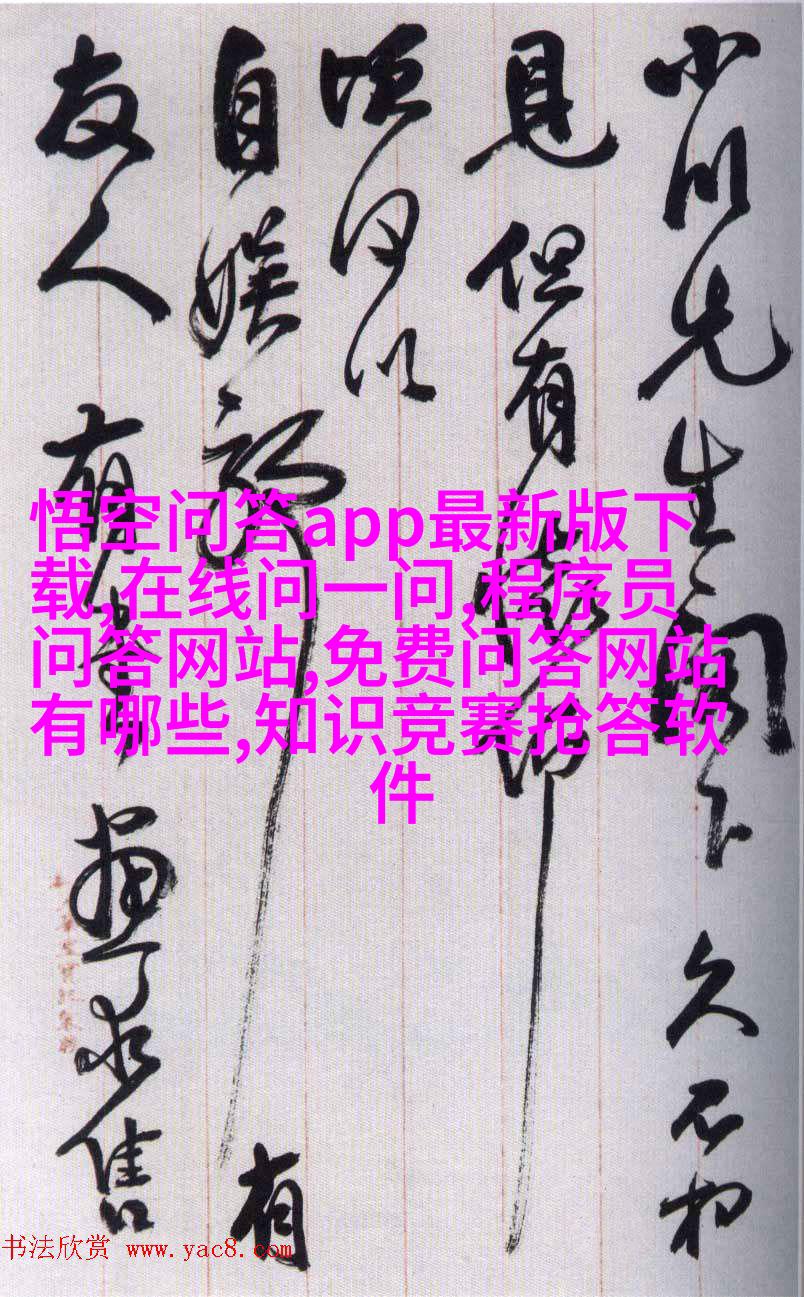 小川先生閣下 久不相
見 但有
何以
自娱 有
友人 有書畫求售
悟空问答app最新版下
载,在线问一问,程序员
问答网站,免费问答网站
有哪些,知识竞赛抢答软
件
书法欣赏 www.yac8.com